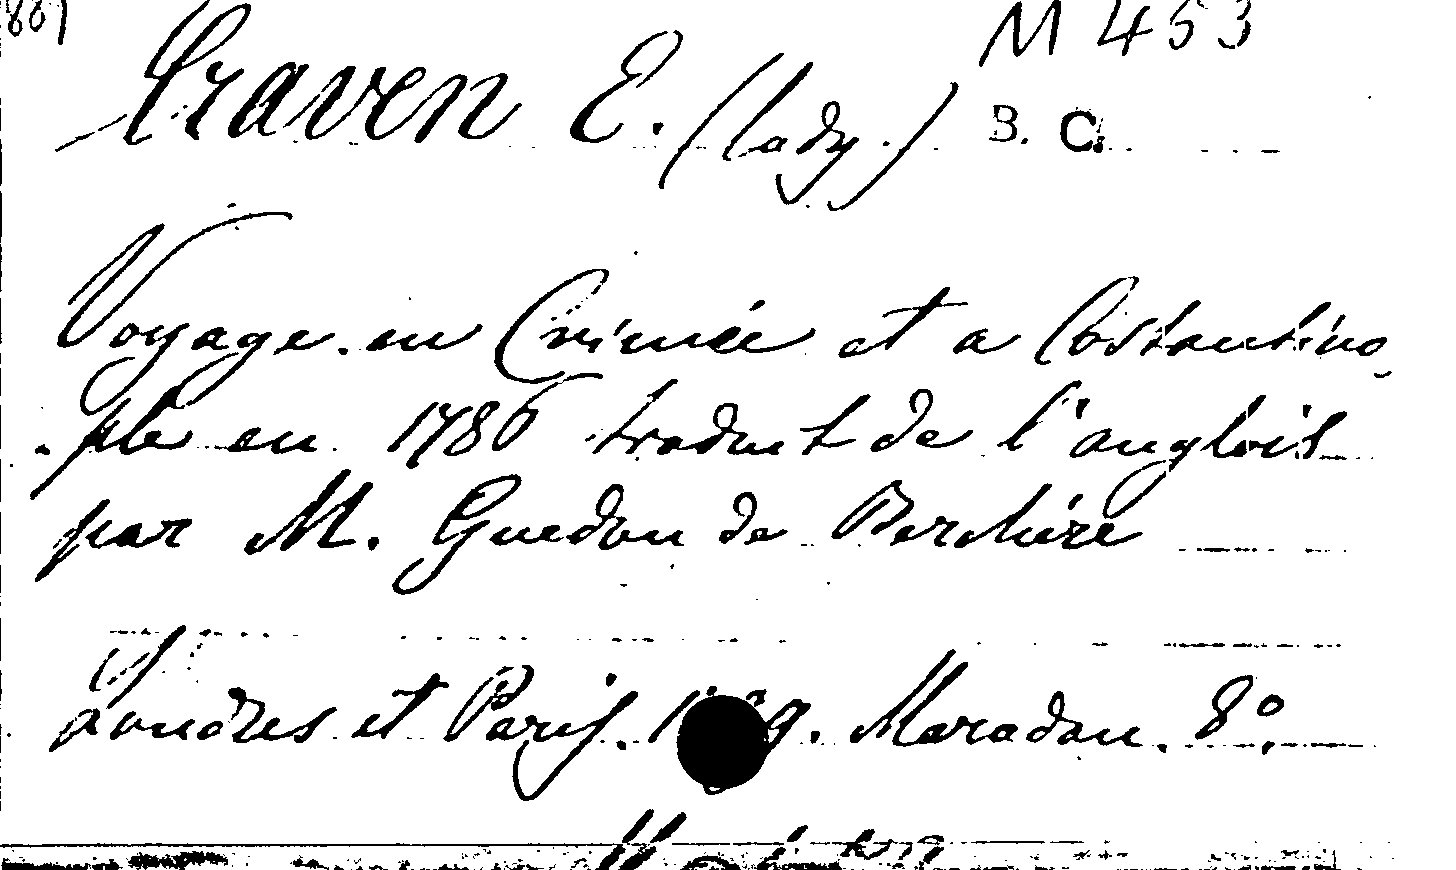 M 453
Craven E. (lady.) B. C.
Voyage en Crimée et a Costantino,
ple en 1786 traduit de l'anglois
par M. Guedon de Berchère
Londres et Paris. Maradan. 8°.